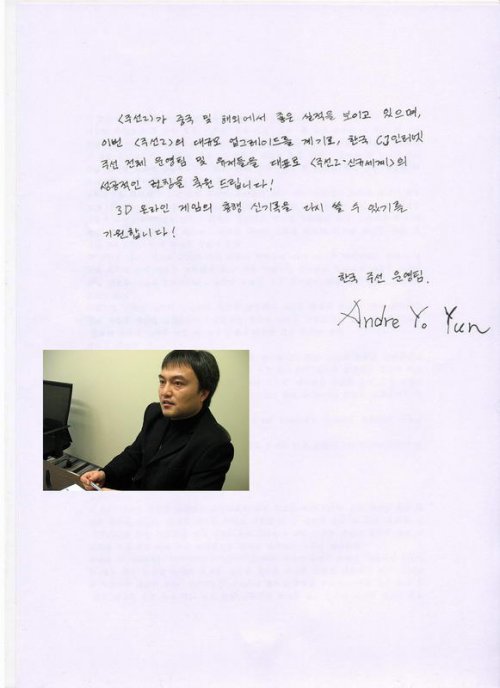 <주선2>가 중국 및 해외에서 좋은 실적을 보이고 있으며,
이번 <주선2>의 대규모 업그레이드를 계기로, 한국 CJ인터넷
주선 전체 운영팀 및 유저들을 대표로 <주선2-신규세계>의
성공적인 런칭을 축원 드립니다!
3D 온라인 게임의 흥행 신기록을 다시 쓸 수 있기를
기원합니다!
한국 주선 운영팀.
Andre Y. Yun